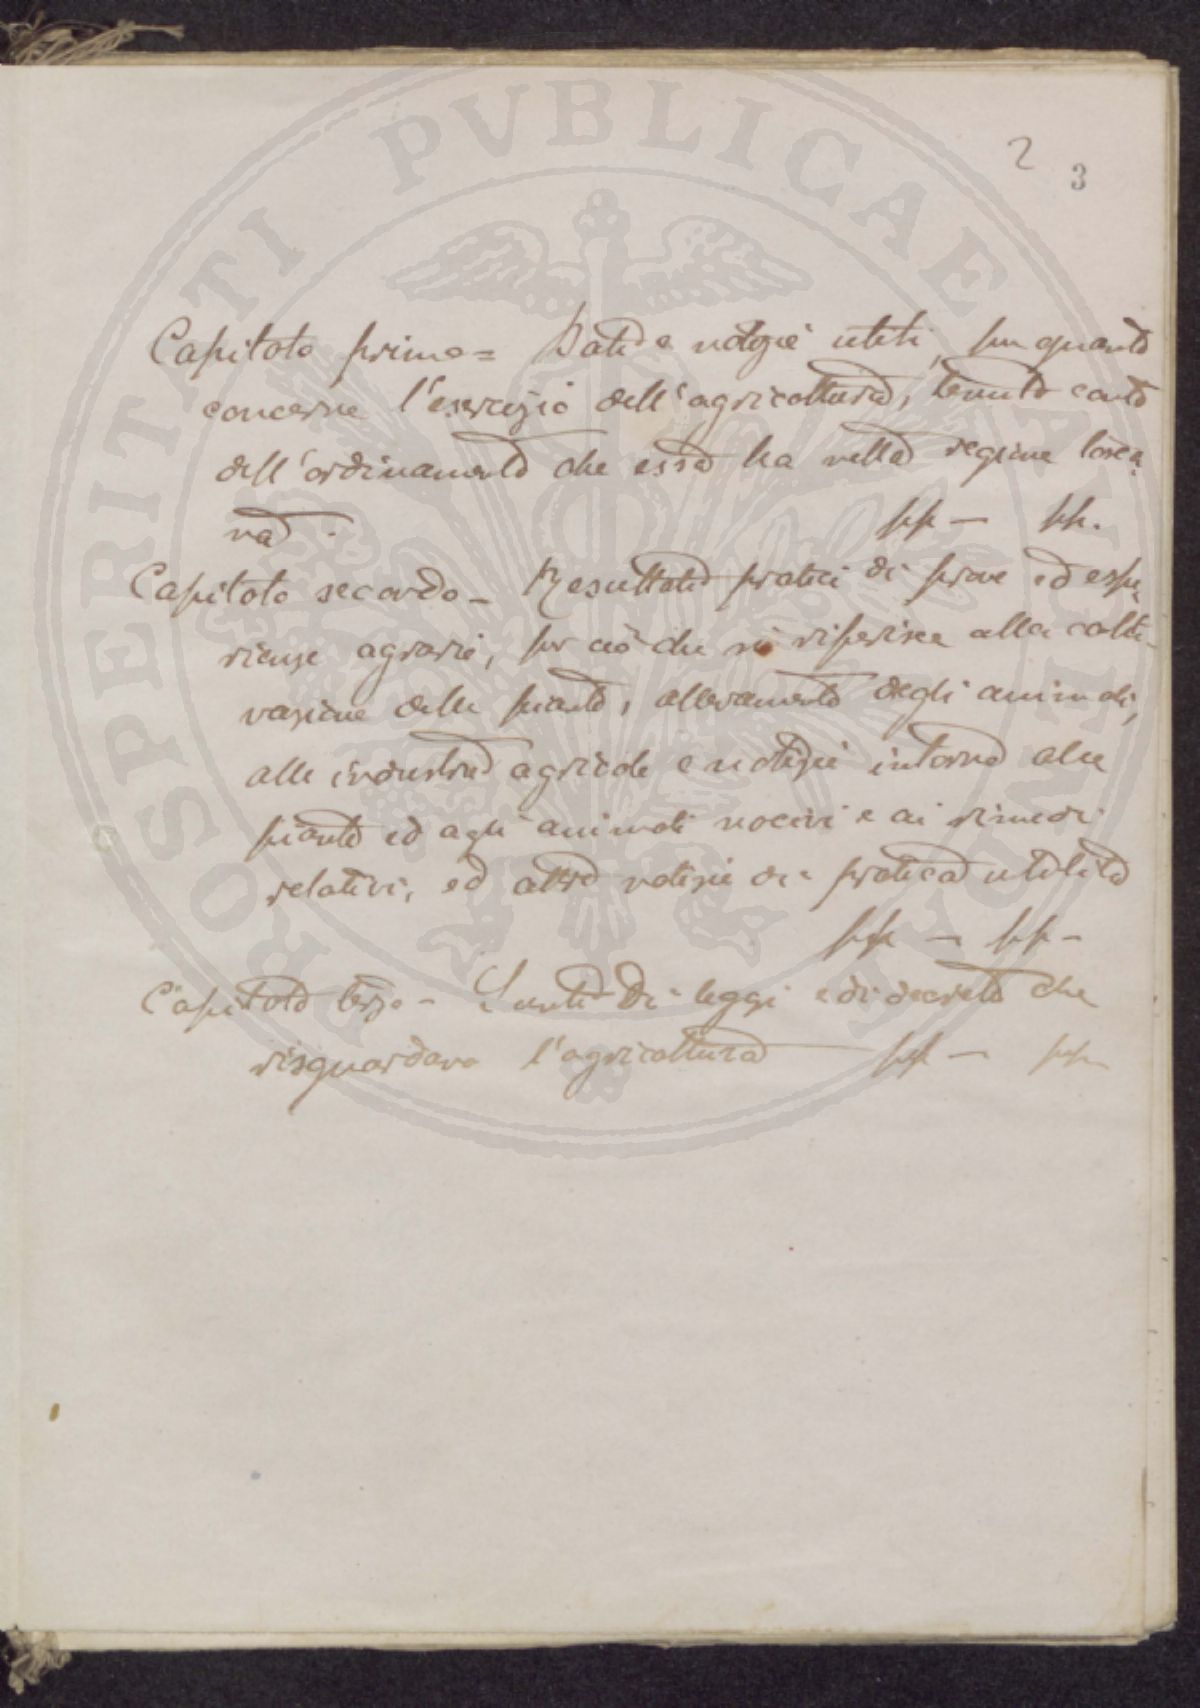 PROSPERITATI PVBLICAE AVGENDAE
2
3
Capitolo primo = Dati e notizie utili, per quanto
concerne l'esercizio dell'agricoltura, tenuto conto
dell'ordinamento che essa ha nella regione tosca-
na.
pp — pp.
Capitolo secondo — Resultati pratici di prove ed espe-
rienze agrarie, per ciò che si riferisce alla colti-
vazione delle piante, allevamento degli animali,
alle industrie agricole e notizie intorno alle
piante ed agli animali nocivi e ai rimedi
relativi, ed altre notizie di pratica utilità
pp — pp —
Capitolo terzo — Sunti di leggi e di decreti che
risguardano l'agricoltura pp — pp